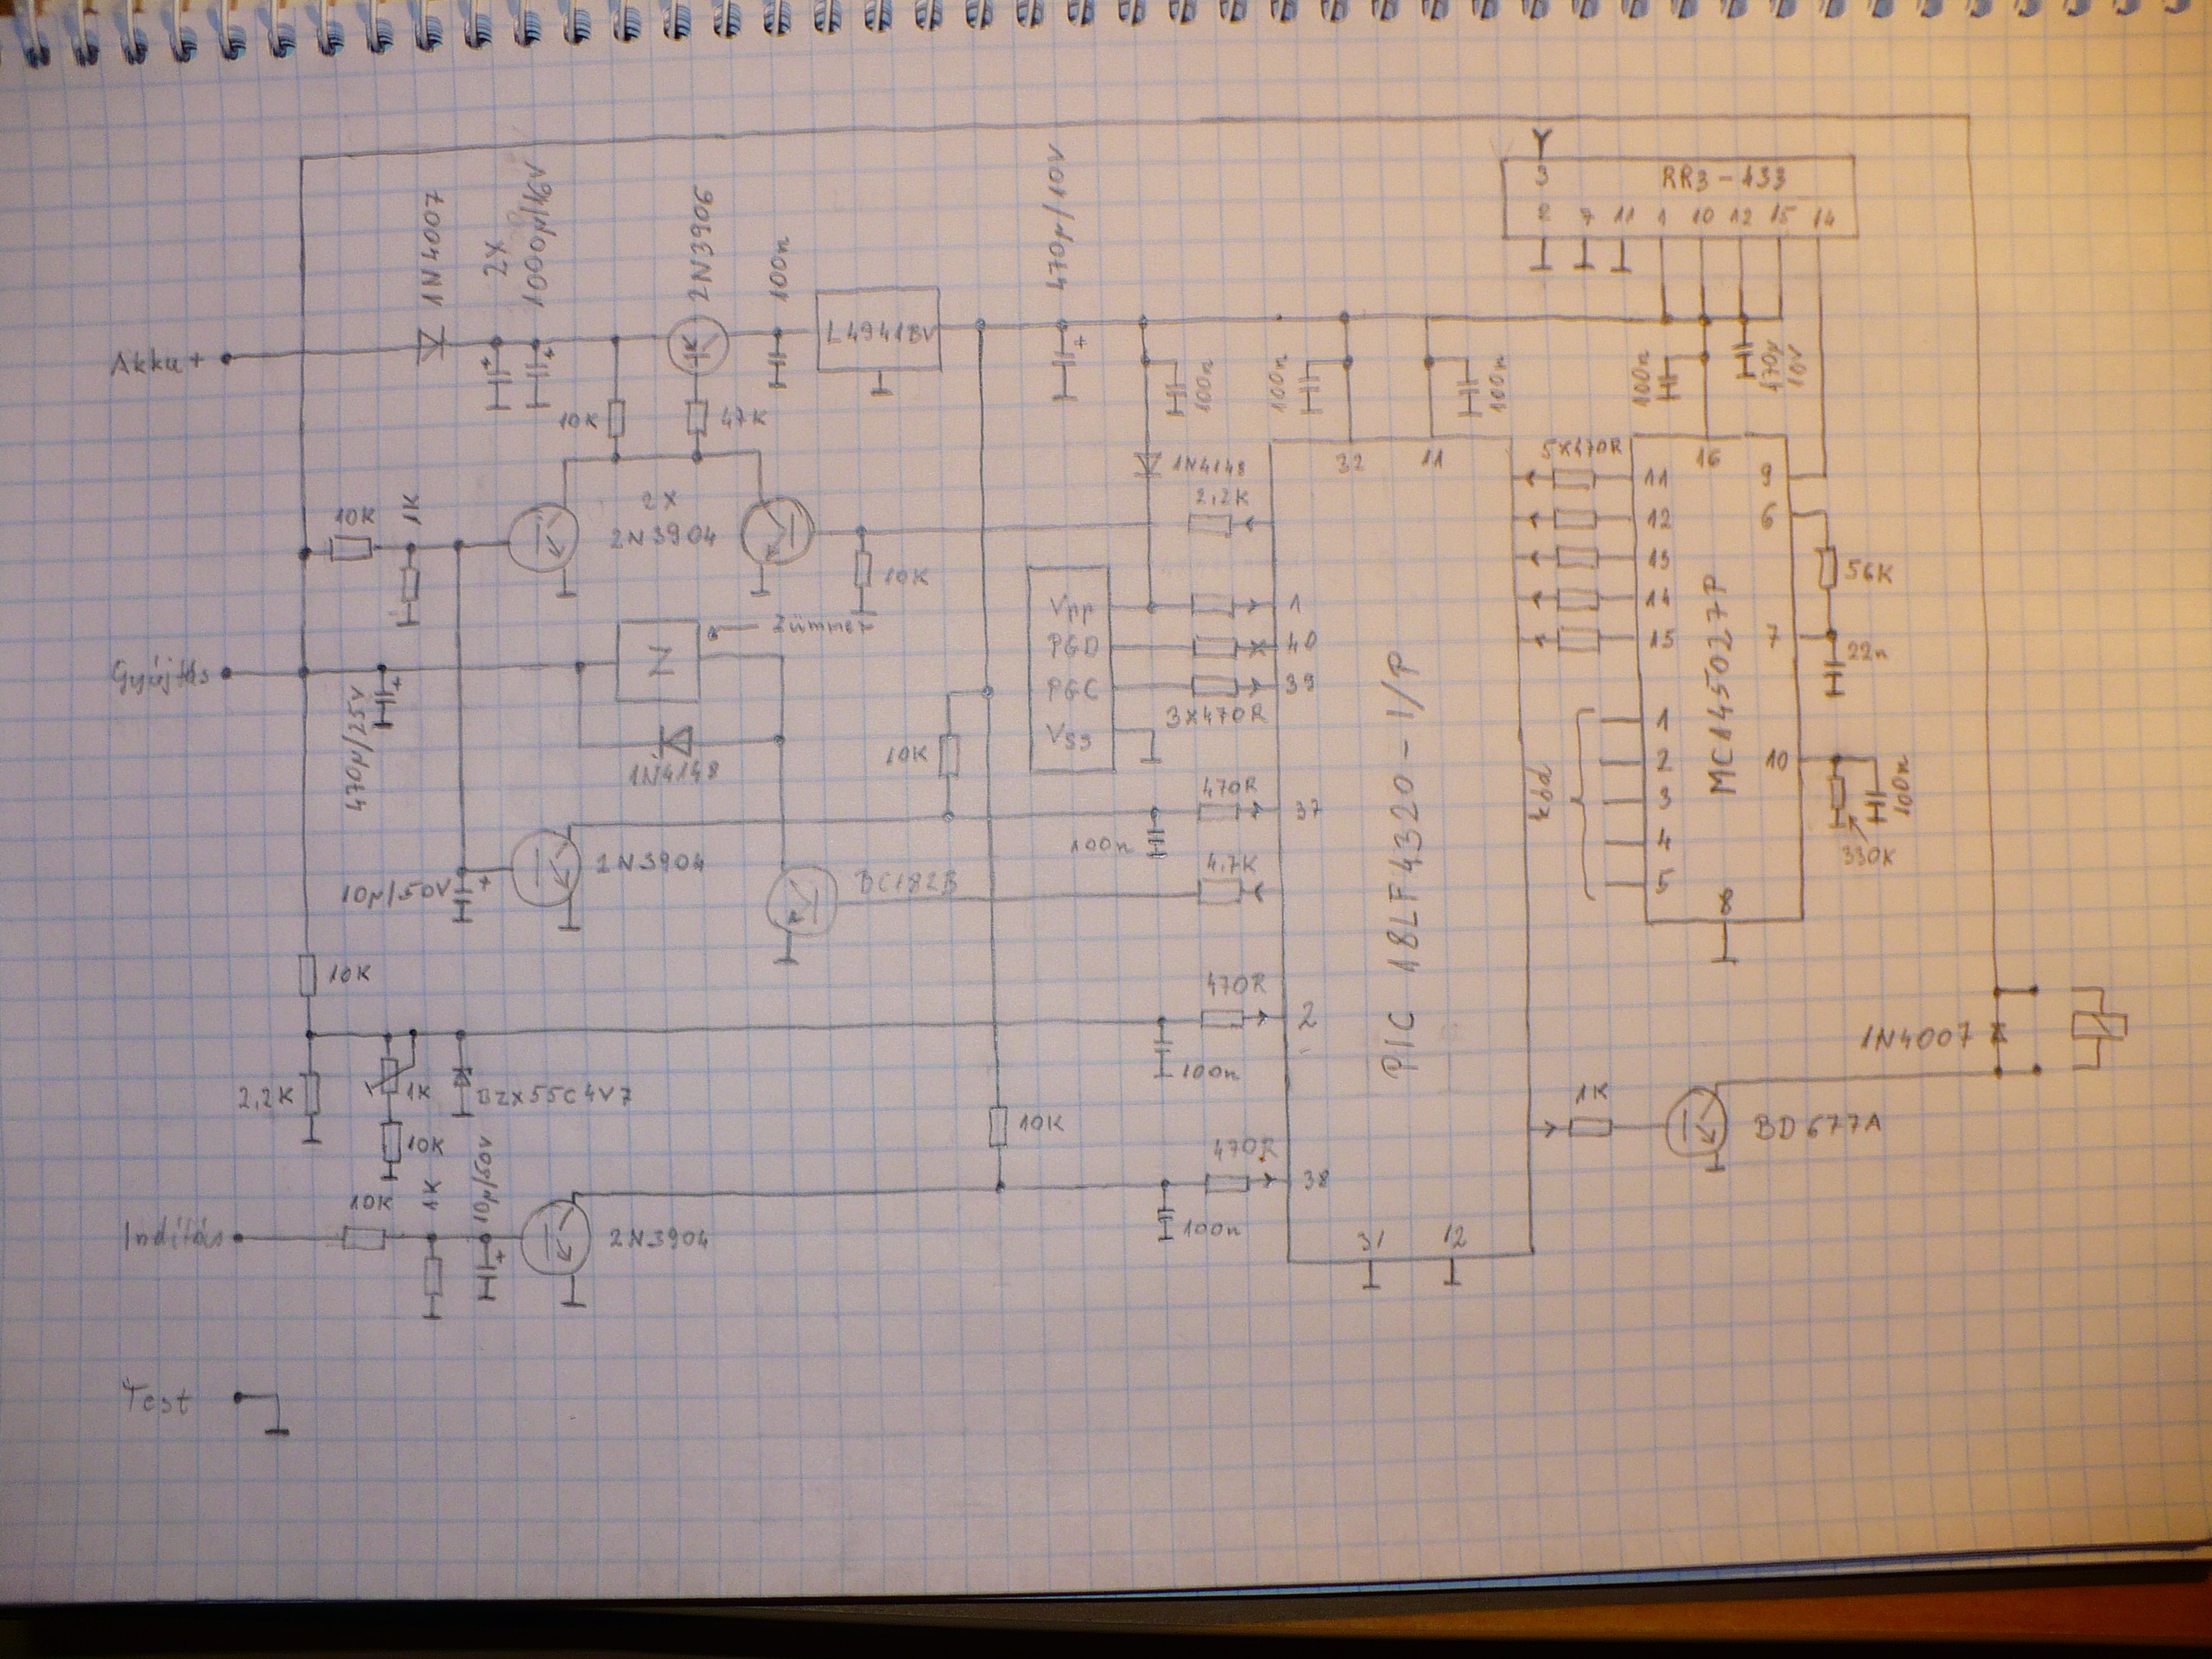 RR3-433
3
2 7 11 1 10 12 15 14
1N4007
2X
1000µ/16V
2N3906
100n
470µ/10V
Akku+
L4941BV
10K
47K
100n
100n
100n
100n
470µ
10V
10K
1K
2X
2N3904
10K
1N4148
2,2K
32
11
5X470R
11
12
13
14
15
16
9
6
56K
7
22n
Zümmer
Z
Vpp
PGD
PGC
Vss
1
40
39
3X470R
Gyújtás
470µ/25V
1N4148
10K
PIC 18LF4320-I/P
MC145027P
kód
1
2
3
4
5
10
100n
330K
8
470R
37
100n
4,7K
10µ/50V
2N3904
BC182B
10K
470R
2
100n
2,2K
1K
10K
BZX55C4V7
10K
470R
38
100n
1N4007
1K
BD677A
Indítás
10K
1K
10µ/50V
2N3904
31
12
Test